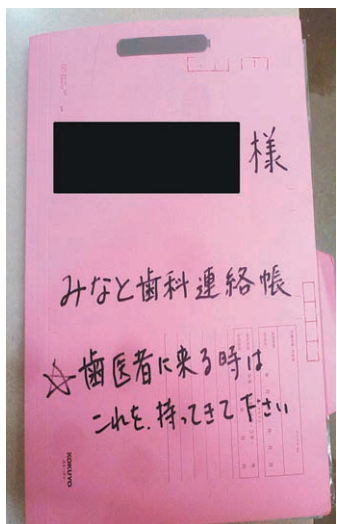 様
みなと歯科連絡帳
☆歯医者に来る時は
これを、持ってきて下さい
KOKUYO